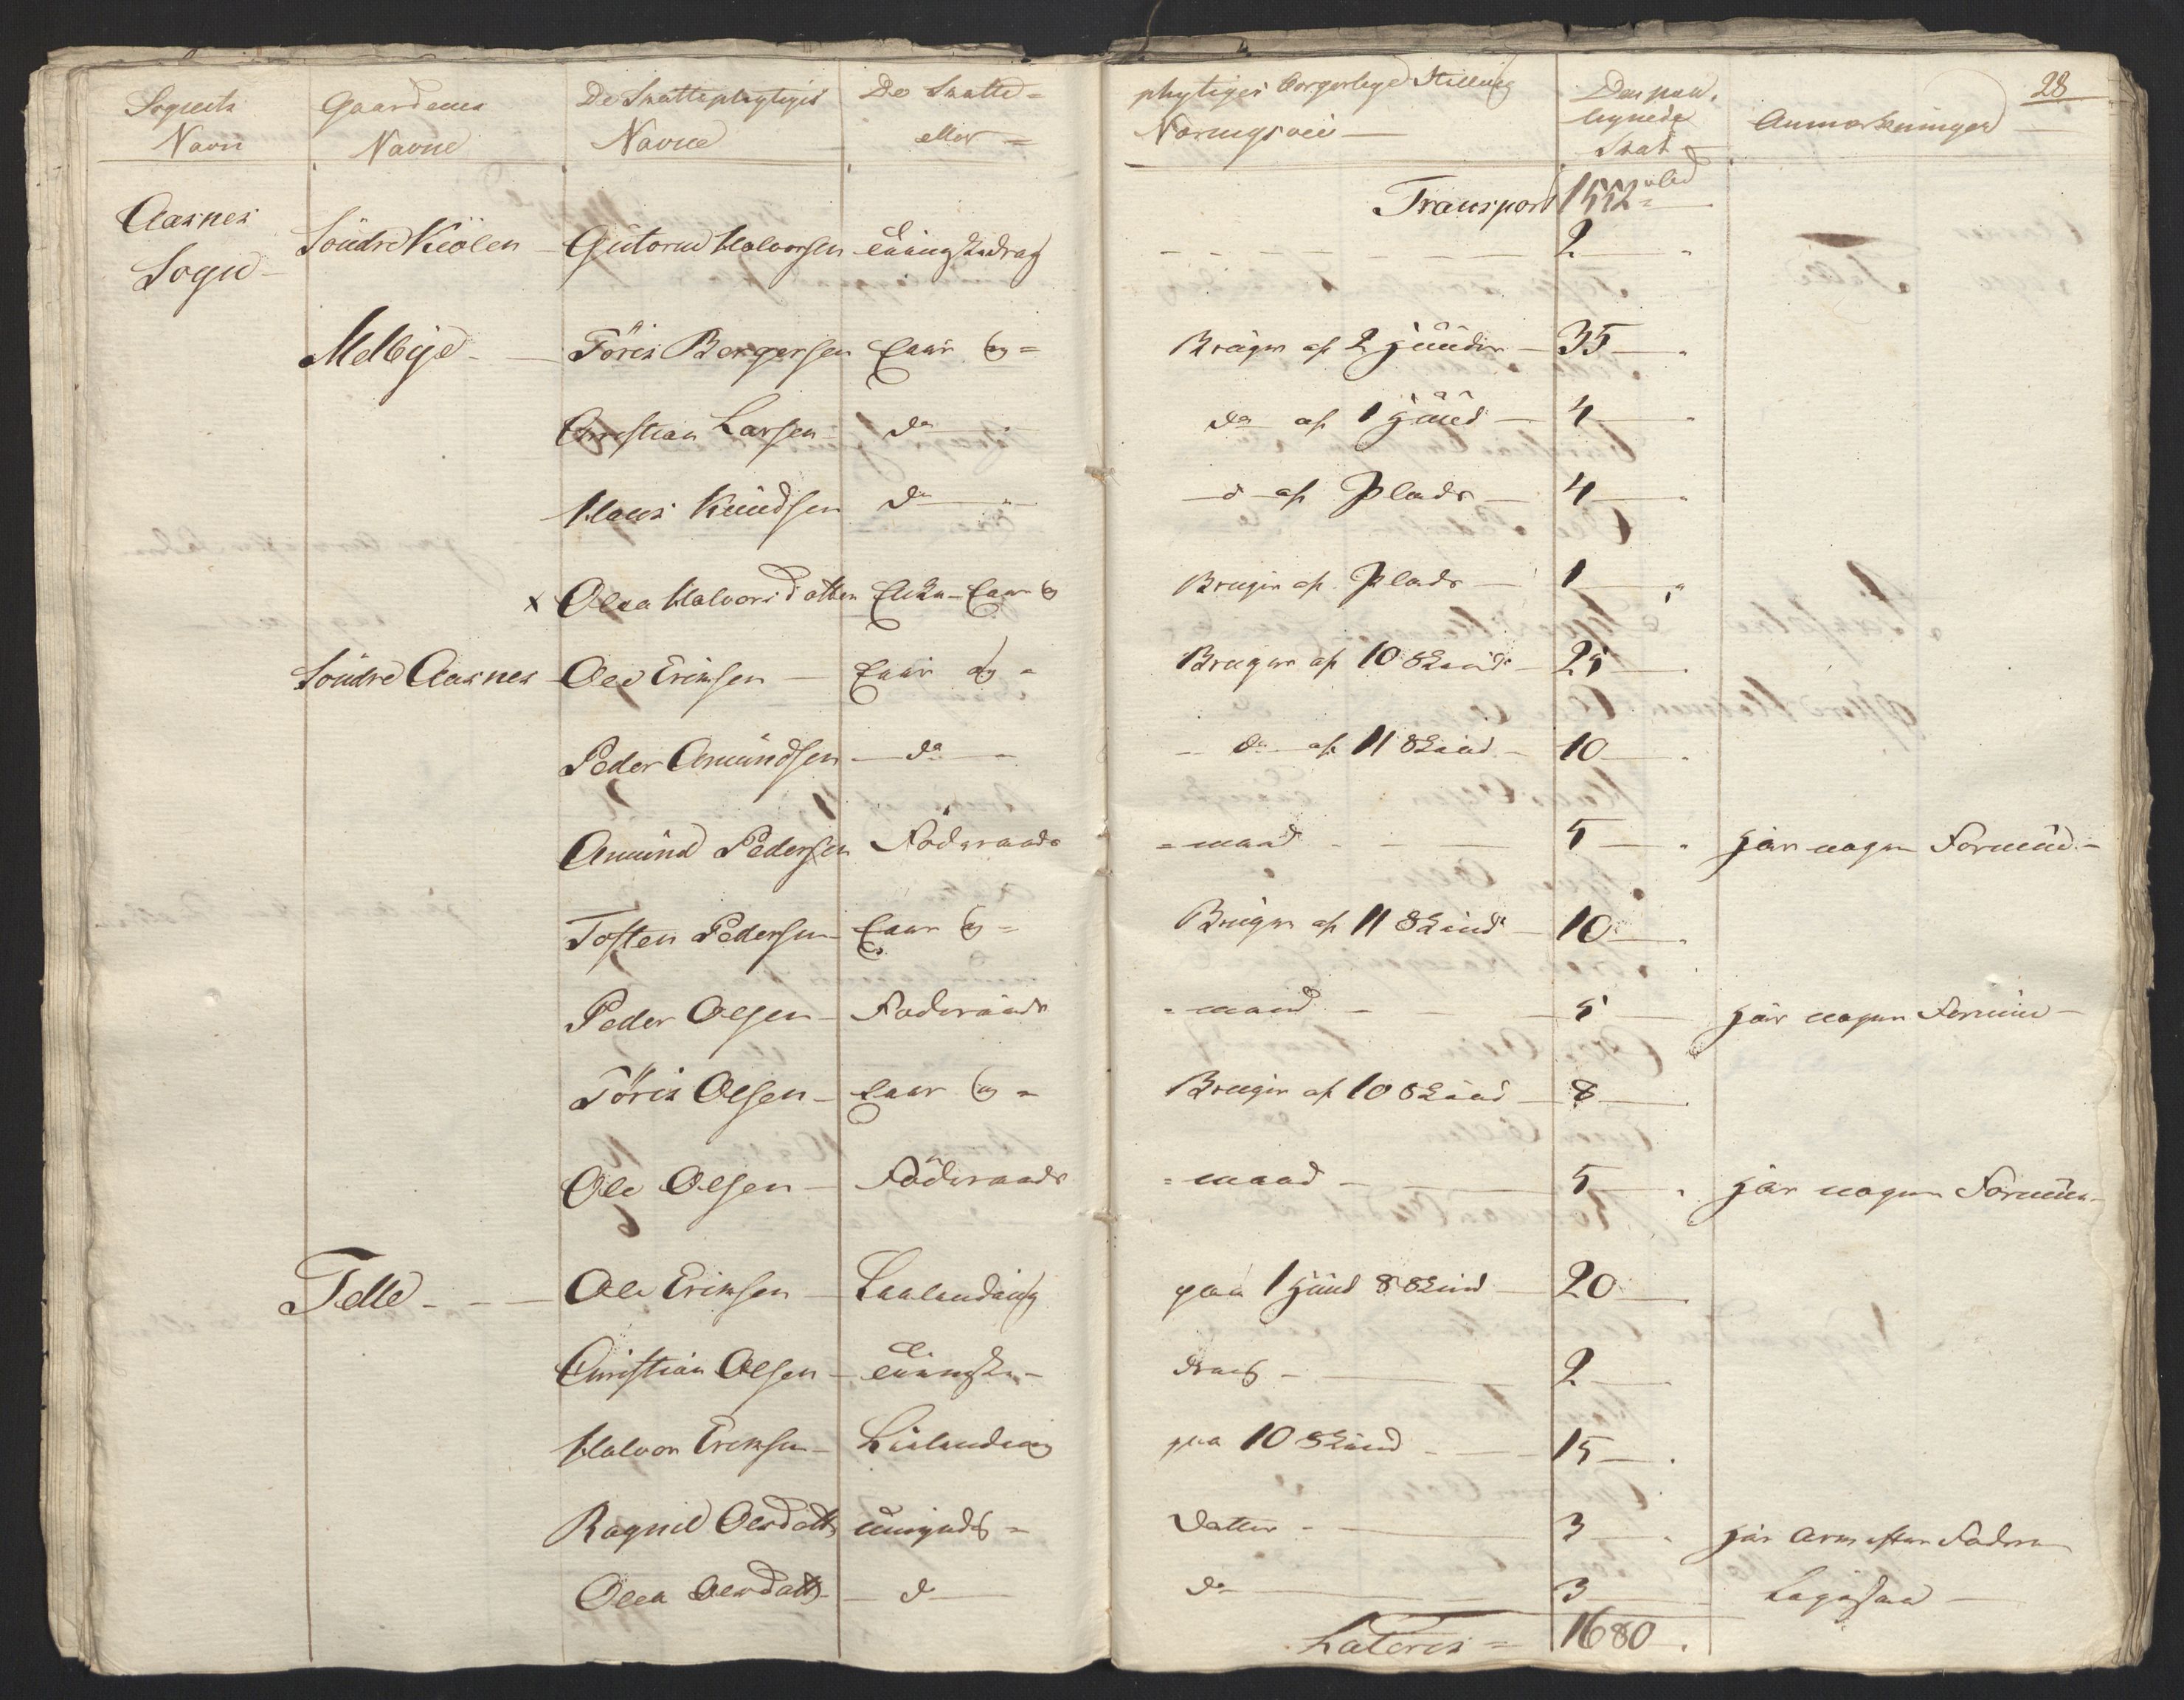 28
Sognets Navn Gaardenes Navne De Skattepligtiges Navne De Skatte= eller = pligtiges borgerlige Stilling Næringsvei Den paa lignede Skat Anmærkninger
Transport 1552
Aasnes Sogn Söndre Kiölen Gutorm Halvorsen 2
Melbye Töris Bergersen Eier og = Bruger af 2 Huuder 35
Christian Larsen do do af 1 Huud 4
Hans Knudsen do d af Plads 4
x Olea Halvorsdatter Enke Eier og Bruger af Plads 1
Söndre Aasnes Ole Eriksen Eier og = Bruger af 10 Skind 25
Peder Amundsen do do af 11 Skind 10
Amund Pedersen Föderaads =mand 5 har nogen Formue
Tosten Pedersen Eier og = Bruger af 11 Skind 10
Peder Olsen Foderaads =mand 5 har nogen Formue
Töris Olsen Eier og = Bruger af 10 Skind 8
Ole Olsen Föderaads =mand 5 har nogen Formue
Telle Ole Eriksen Leilænding paa 1 Huud 8 Skind 20
Christian Olsen 2
Halvor Eriksen Leilænding paa 10 Skind 15
Ragnil Olesdatt umyndig = Datter 3 har Arv efter Faderen
Olea Olesdatt d do 3
Lateris = 1680